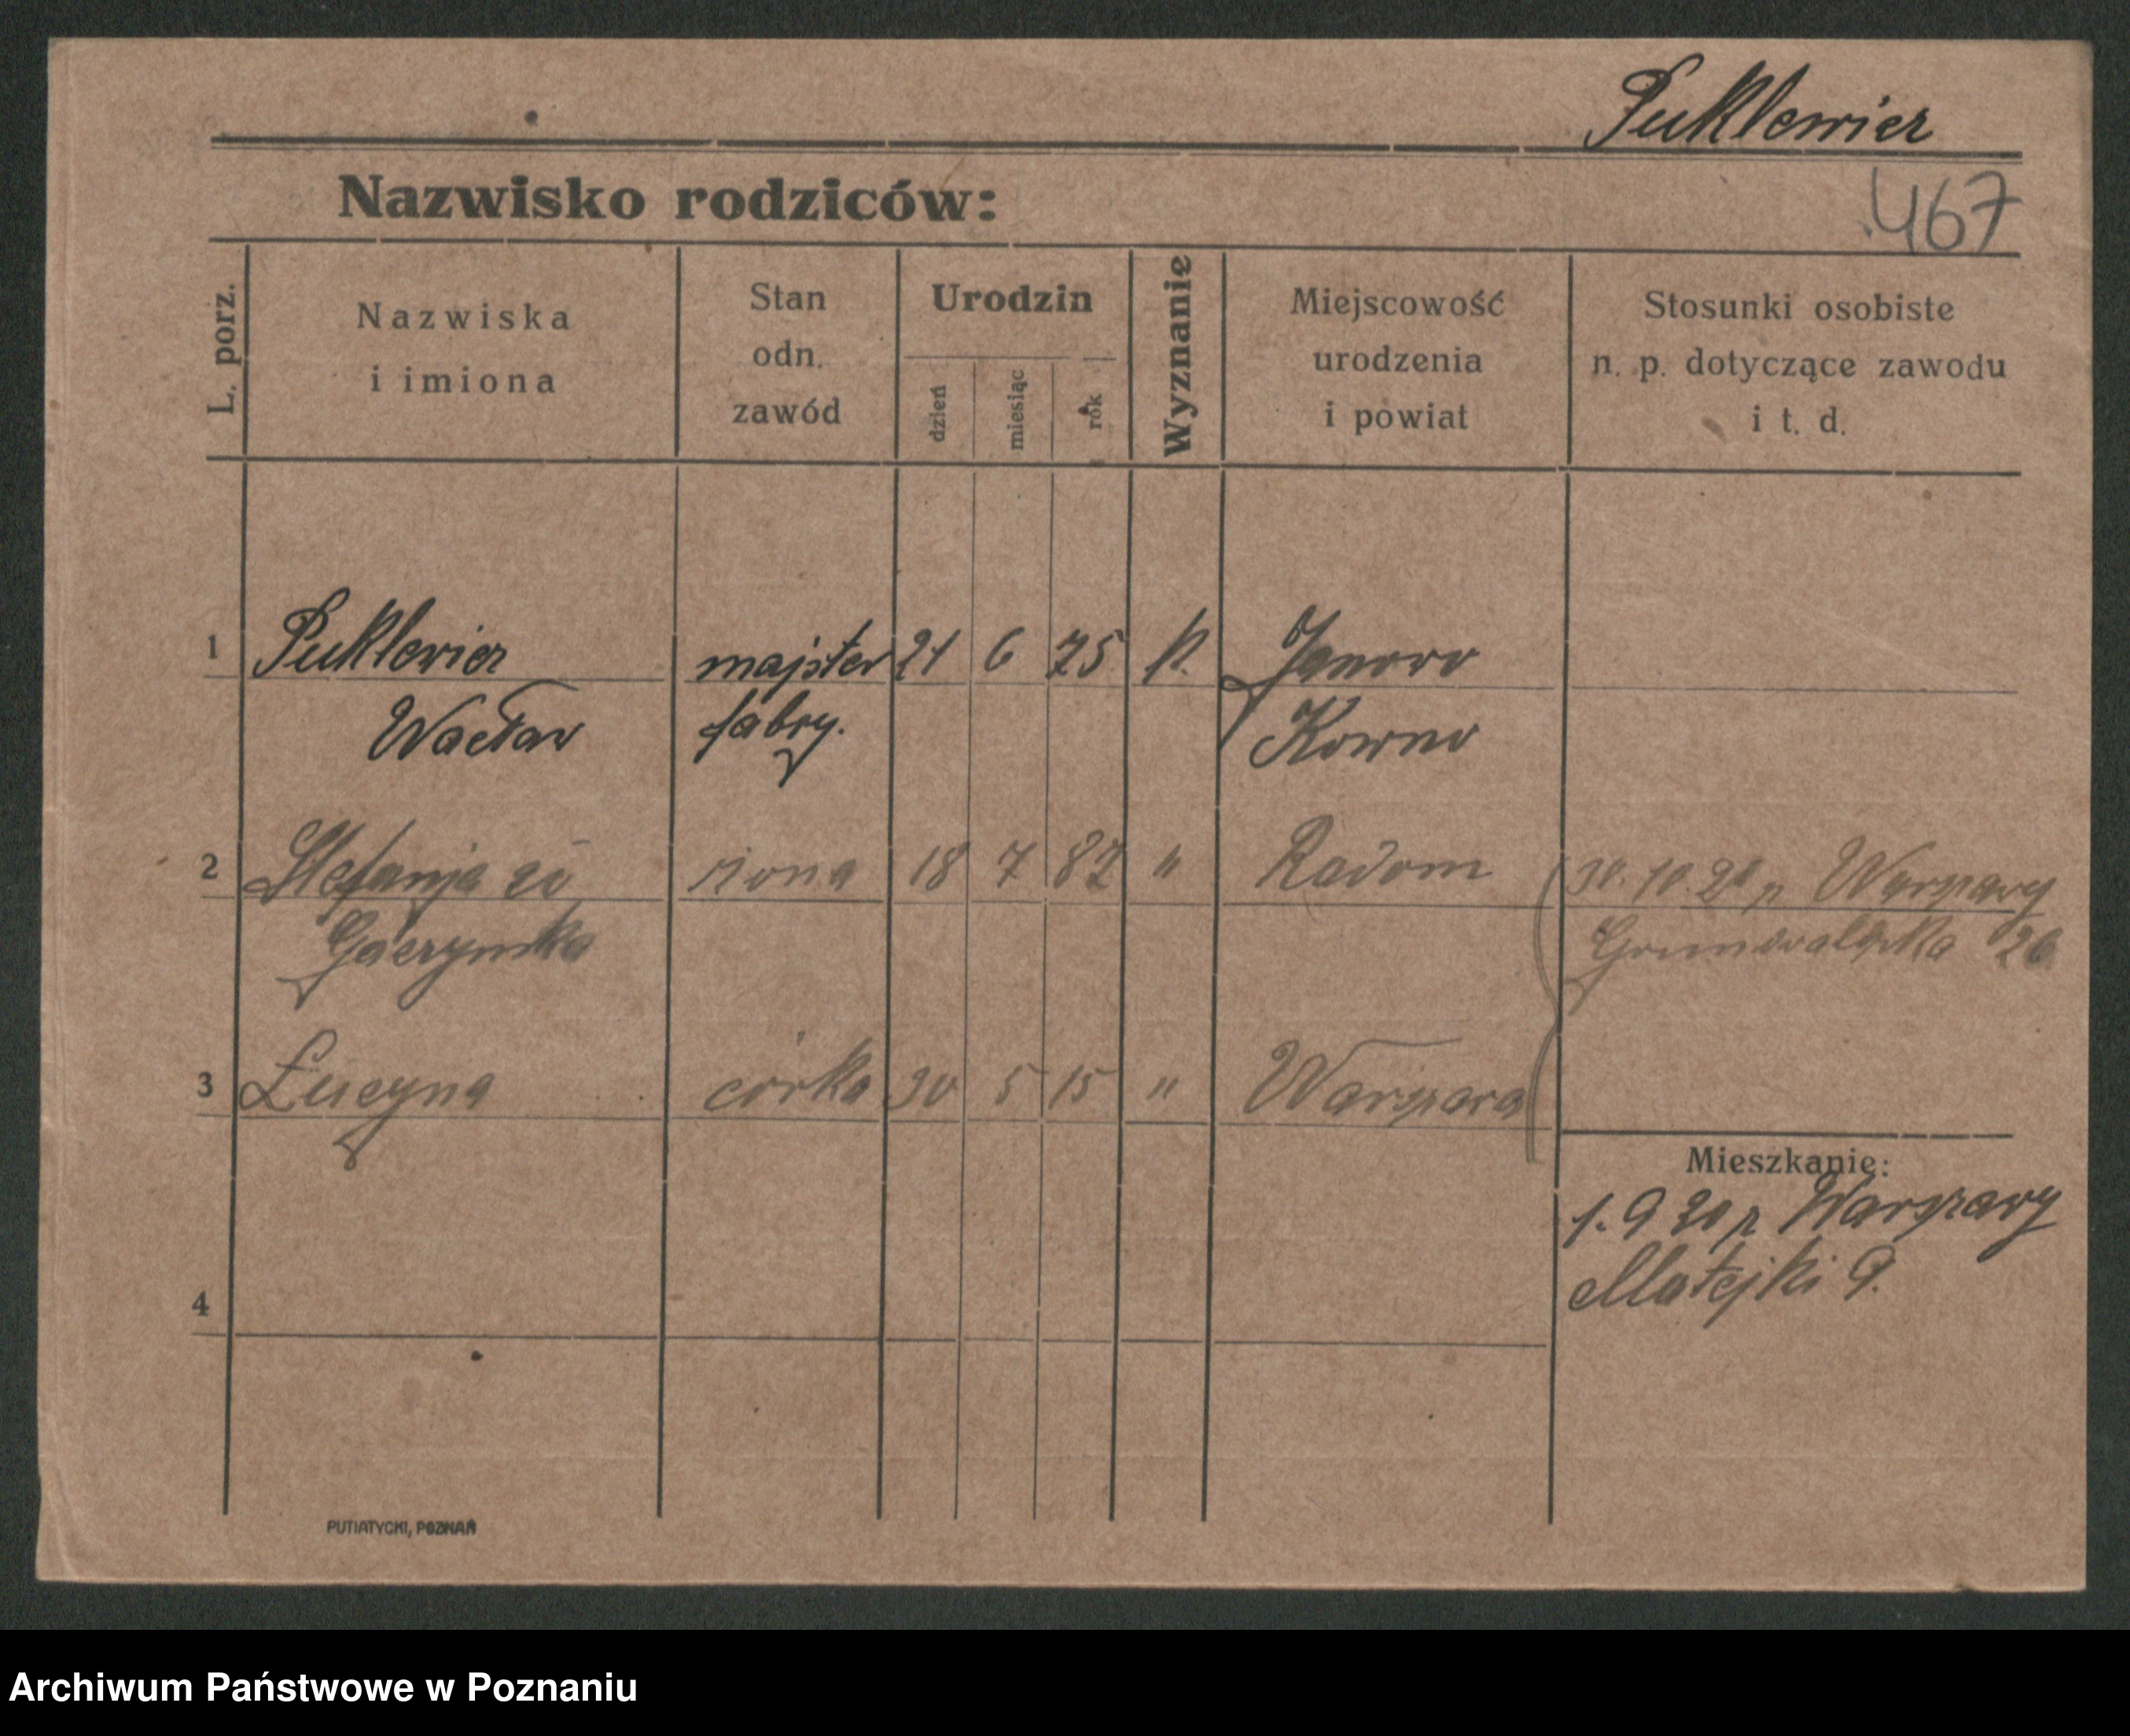 Puklewicz
Nazwisko rodziców:
467
L. porz.
Nazwiska
i imiona
Stan
odn.
zawód
Urodzin
dzień
miesiąc
rok
Wyznanie
Miejscowość
urodzenia
i powiat
Stosunki osobiste
n. p. dotyczące zawodu
i t. d.
1 Puklewicz majster 21 6 75 k. Janowo
Wacław fabry. Kowno
2 Stefanja zd żona 18 7 87 " Radom 30.10.20 z Warszawy
Grunwaldzka 26
3 Lucyna córka 30 5 15 " Warszawa
Mieszkanie:
1.9 20 z Warszawy
Matejki 9.
4
PUTIATYCKI, POZNAŃ
Archiwum Państwowe w Poznaniu